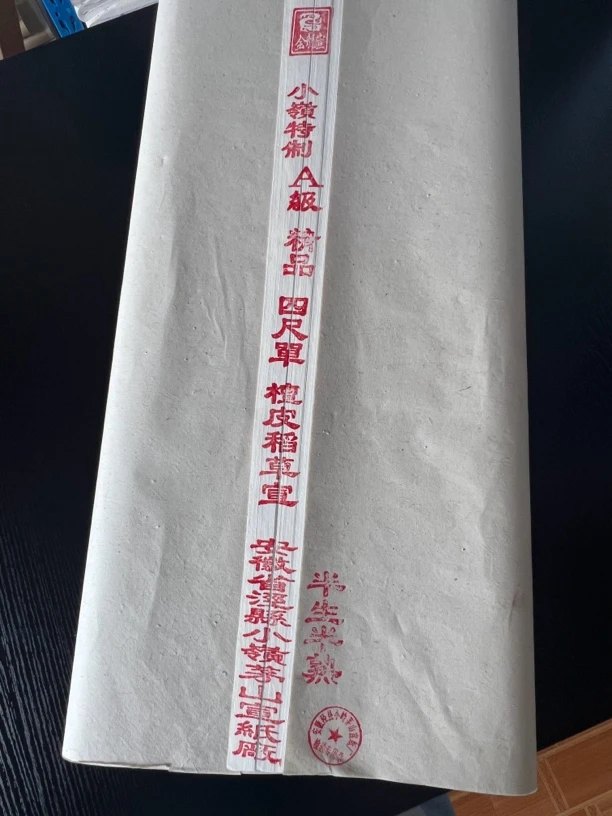 小嶺特制 A級 精品 四尺單 檀皮稻草宣 安徽省涇縣小嶺茅山宣紙厰
半生半熟